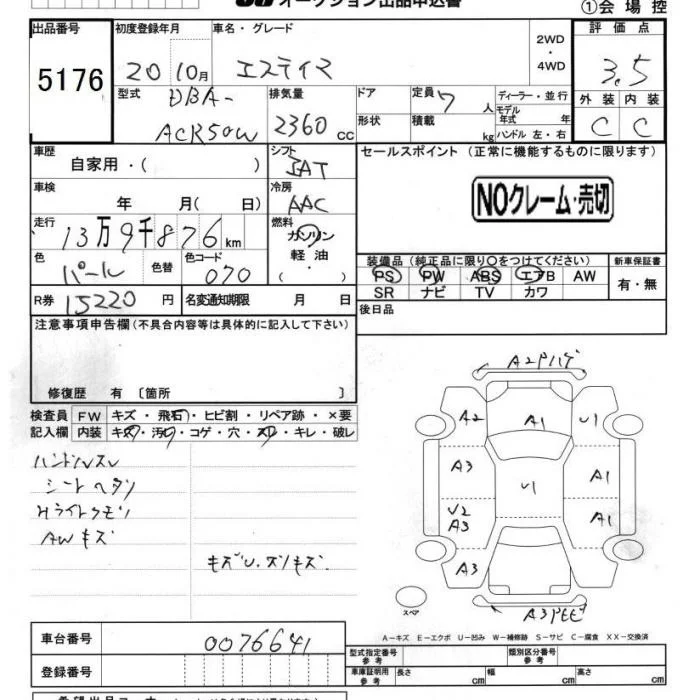 オークション出品申込書
①会場控
出品番号 初度登録年月 車名・グレード 2WD ・ 4WD 評価点
5176 20 10月 エスティマ 3.5
型式 DBA-ACR50W 排気量 2360 CC ドア 形状 定員 7 人 積載 kg ディーラー・並行 モデル年式 年 ハンドル 左・右 外装 内装
C C
車歴 自家用・( ) シフト IAT セールスポイント (正常に機能するものに限ります)
車検 年 月( 日) 冷房 AAC NOクレーム・売切
走行 13万9千876km 燃料 ガソリン 軽油 ・( )
色 パール 色替 色コード 070
装備品 (純正品に限り○をつけてください) 新車保証書
PS PW ABS エアB AW 有・無
SR ナビ TV カワ
R券 15220 円 名変通知期限 月 日 後日品
注意事項申告欄 (不具合内容等は具体的に記入して下さい)
修復歴 有 〔箇所 〕
検査員 FW キズ・飛石・ヒビ割・リペア跡・×要
記入欄 内装 キズ・汚れ・コゲ・穴・スレ・キレ・破レ
ハンドルスレ
シートヘタリ
Hライトクモリ
AWキズ
キズU.ズリキズ
A2Pハゲ
A2 A1 U1
A3 A1
U1
U2 A3 A1
A3
スペア
A3PEE
A－キズ E－エクボ U－凹み W－補修跡 S－サビ C－腐食 XX－交換済
車台番号 0076641
型式指定番号 参考 類別区分番号 参考
登録番号 車庫証明用 参考 長さ cm 幅 cm 高さ cm